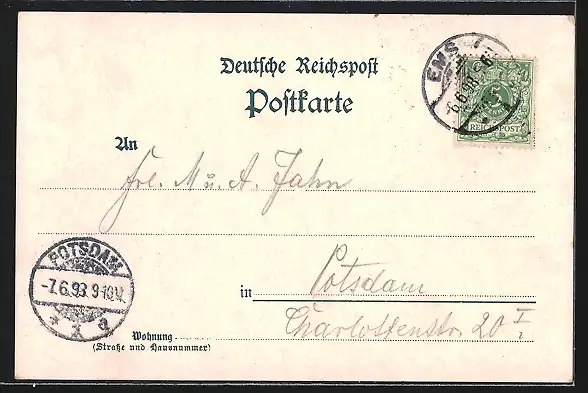 Deutsche Reichspost
Postkarte
EMS
6.6.93
REICHSPOST
An
Frl. M. u. A. Jahn
POTSDAM
-7.6.93. 9-10V.
in Potsdam
Charlottenstr. 20 I.
Wohnung
(Straße und Hausnummer)